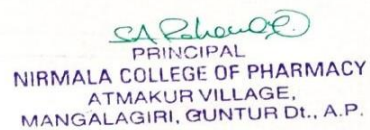 PRINCIPAL
NIRMALA COLLEGE OF PHARMACY
ATMAKUR VILLAGE,
MANGALAGIRI, GUNTUR Dt., A.P.